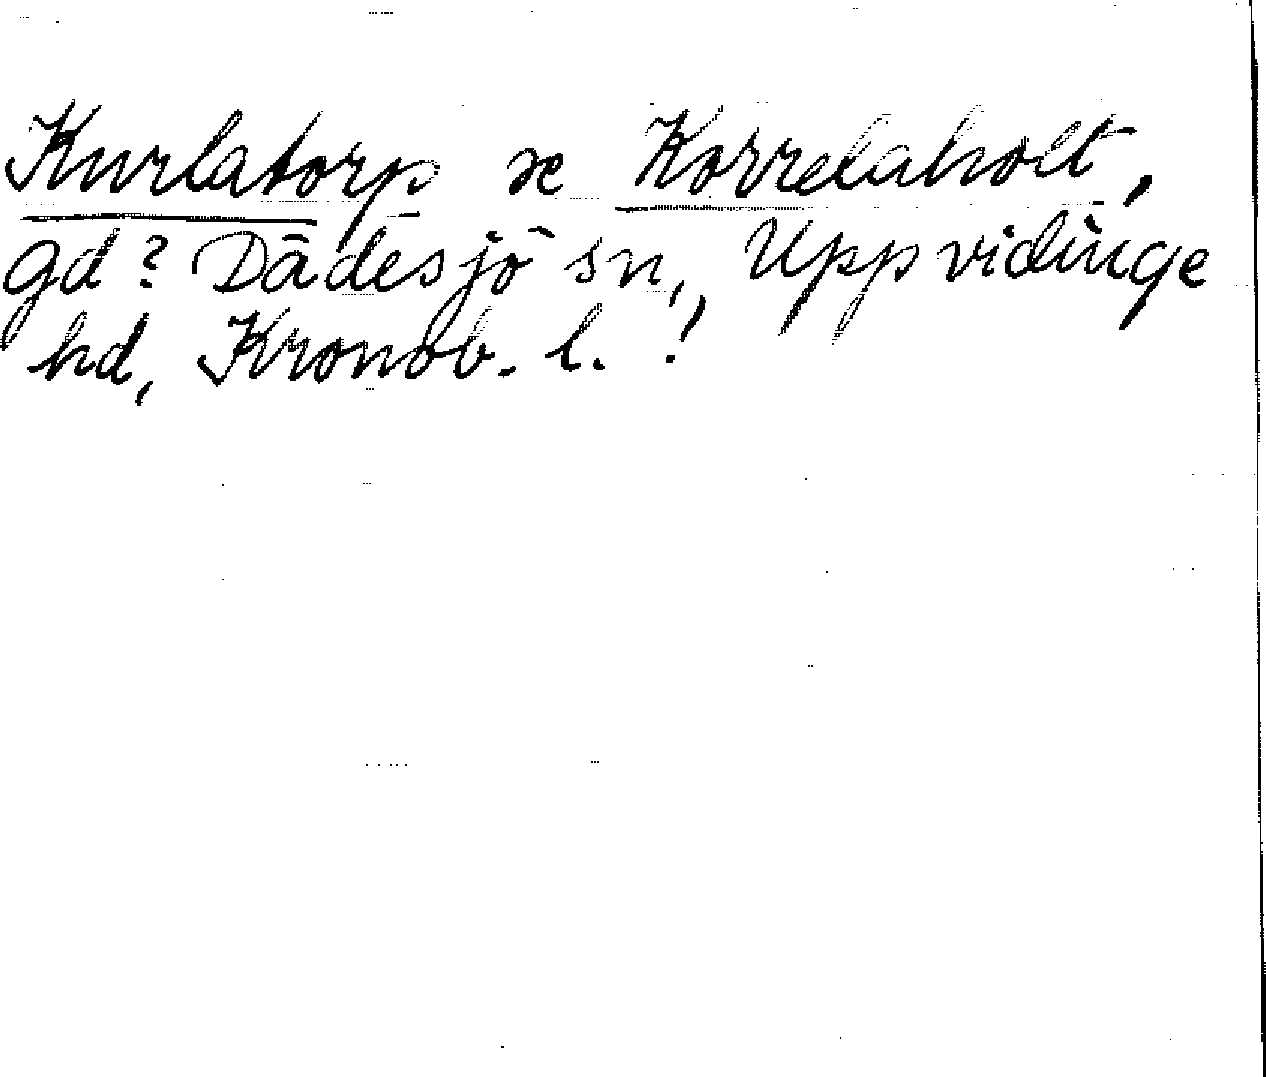 Kurlatorp se Korrelaholt,
gd? Dädesjö sn, Uppvidinge
hd, Kronob. l. !